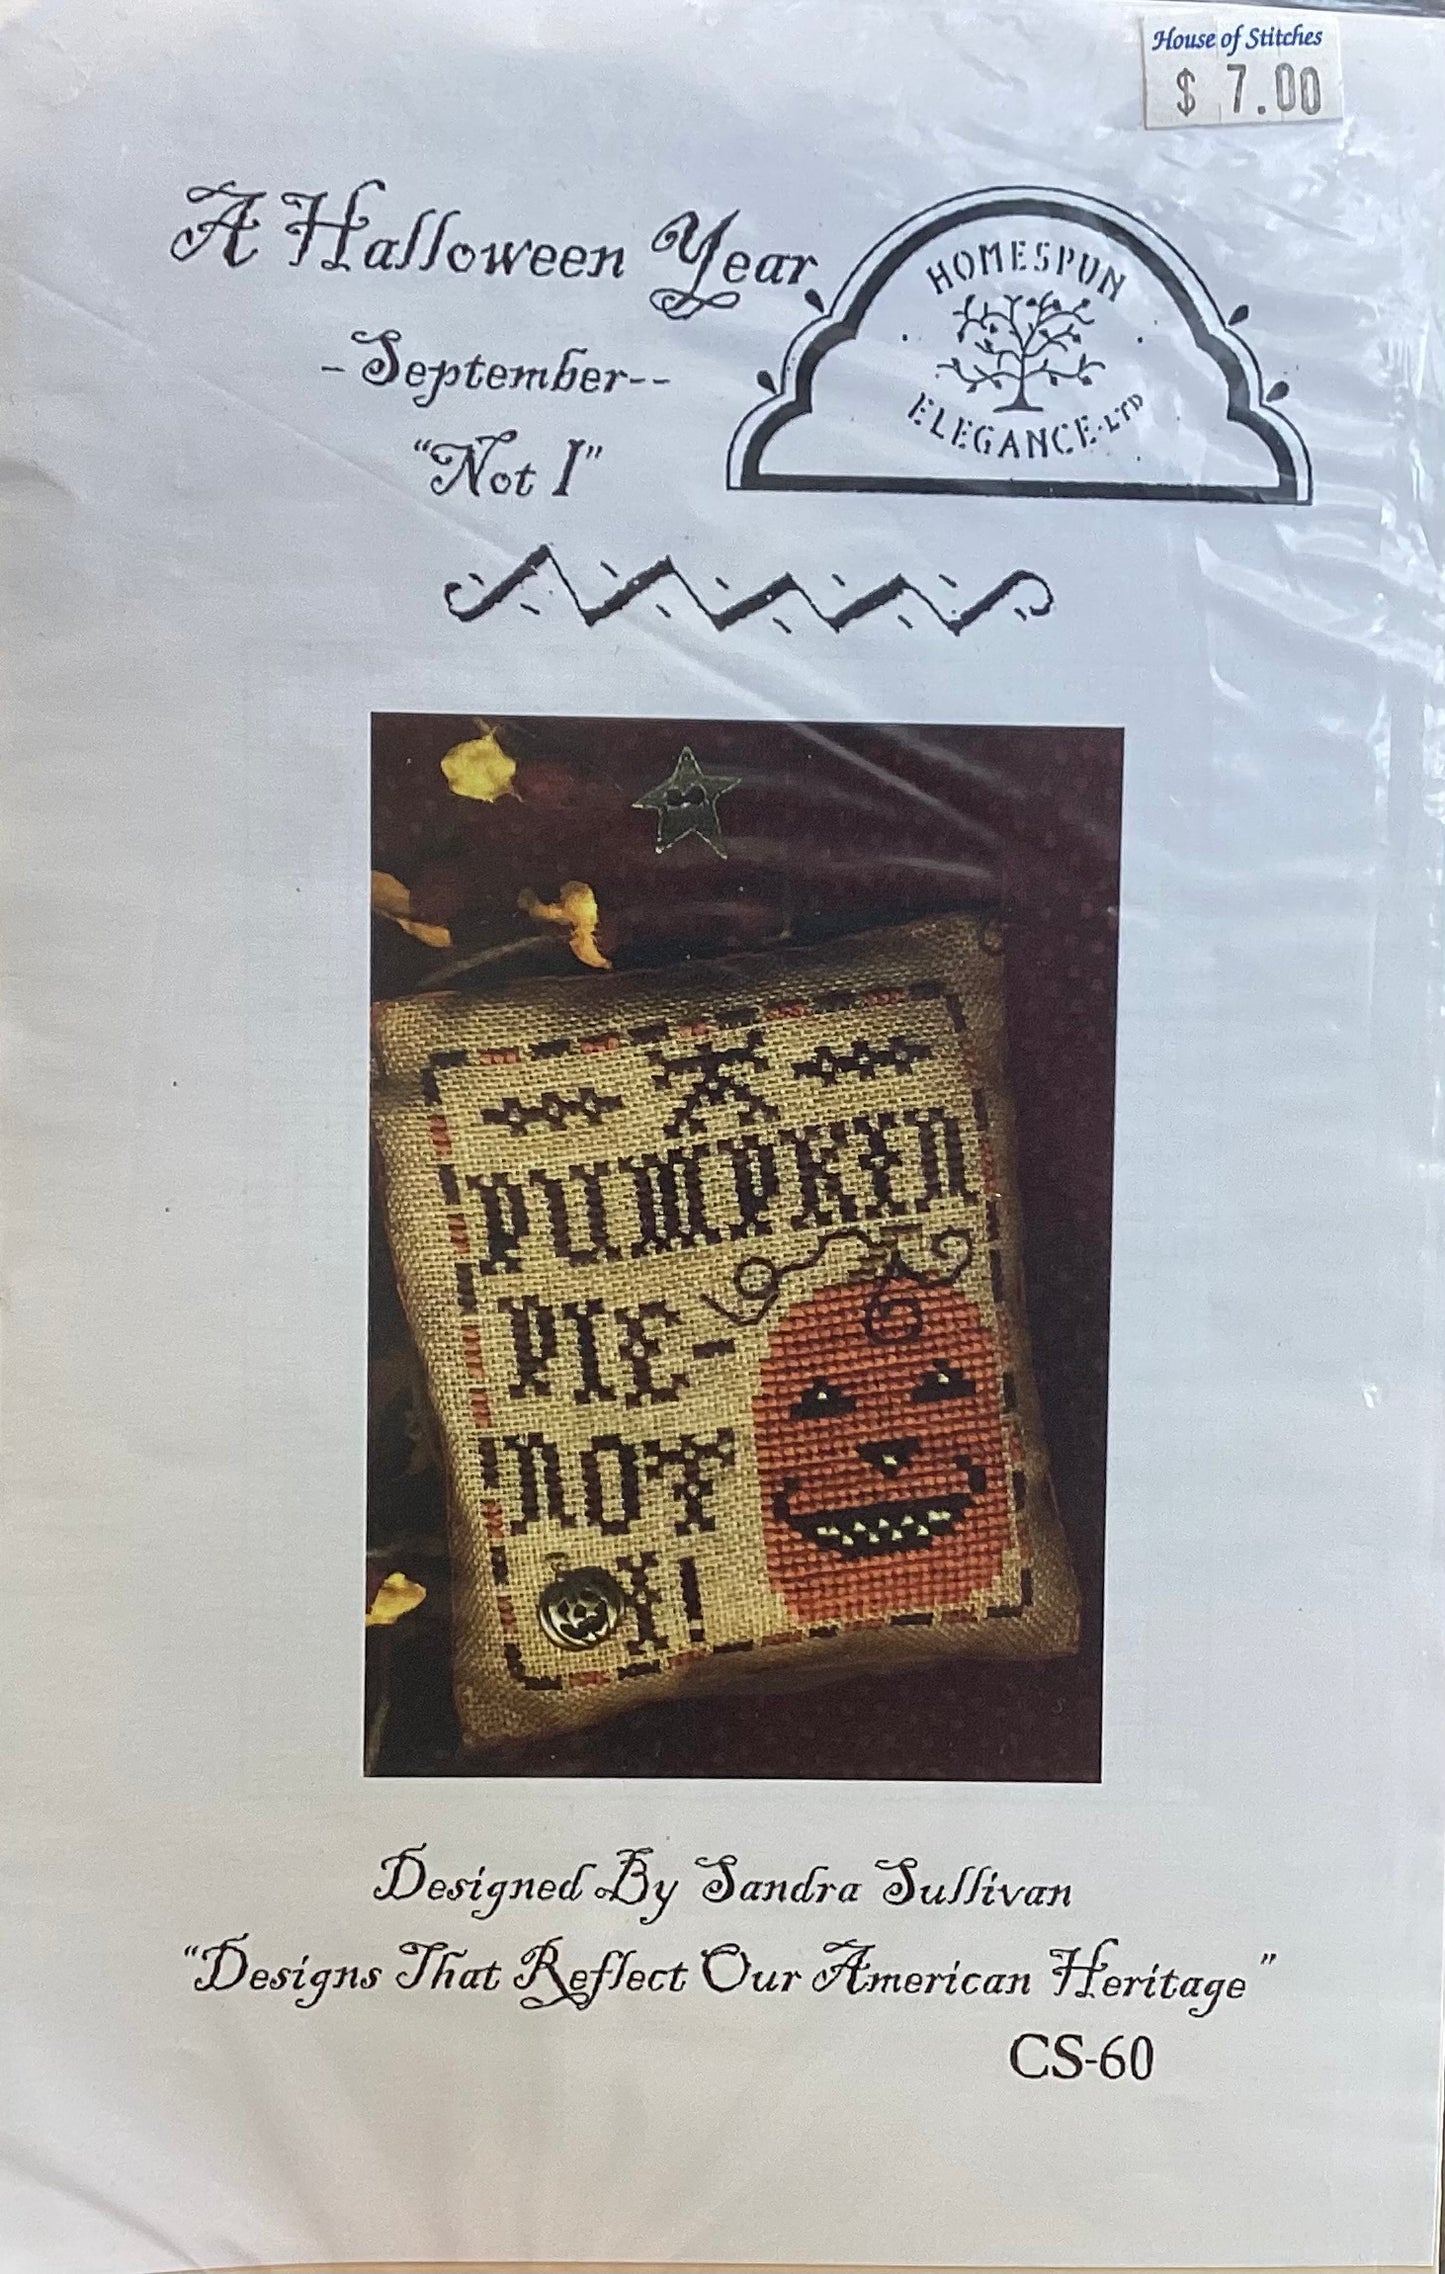 House of Stitches
$ 7.00
A Halloween Year
-September--
"Not I"
HOMESPUN
ELEGANCE·LTD
A
PUMPKIN
PIE-
NOT
I!
Designed By Sandra Sullivan
"Designs That Reflect Our American Heritage"
CS-60